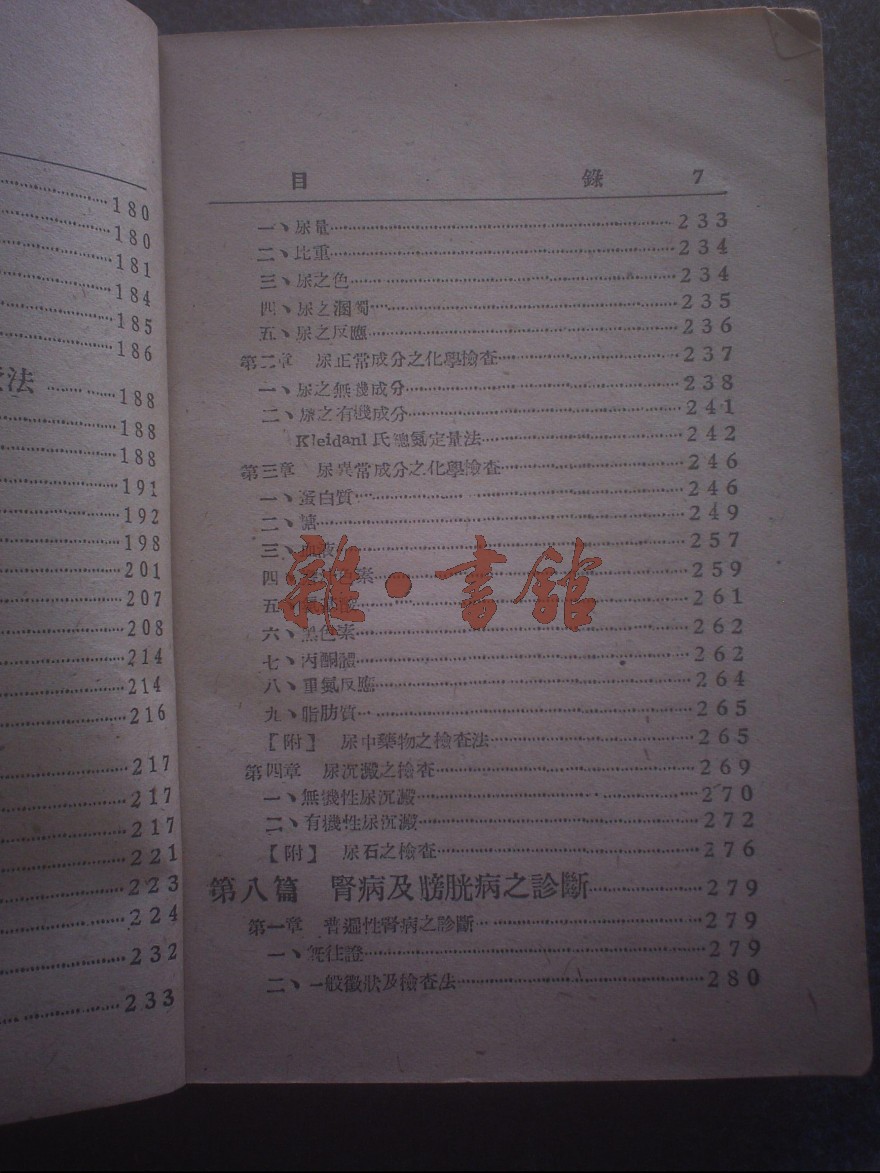 180
180
181
184
185
186
法 188
188
188
191
192
198
201
207
208
214
214
216
217
217
217
221
223
224
232
233
目 錄 7
一、尿量 233
二、比重 234
三、尿之色 234
四、尿之溷濁 235
五、尿之反應 236
第二章 尿正常成分之化學檢查 237
一、尿之無機成分 238
二、尿之有機成分 241
Kleidanl 氏總氮定量法 242
第三章 尿異常成分之化學檢查 246
一、蛋白質 246
二、糖 249
三、血液 257
四、 素 259
五、 酸 261
六、黑色素 262
七、丙酮體 262
八、重氮反應 264
九、脂肪質 265
【附】 尿中藥物之檢查法 265
第四章 尿沉澱之檢查 269
一、無機性尿沉澱 270
二、有機性尿沉澱 272
【附】 尿石之檢查 276
第八篇 腎病及膀胱病之診斷 279
第一章 普遍性腎病之診斷 279
一、既往證 279
二、一般徵狀及檢查法 280
雜·書館